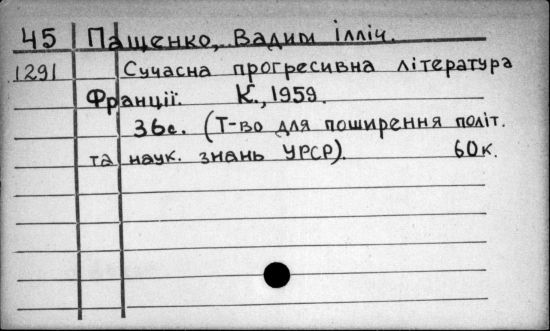 45 Пащенко, Вадим Ілліч.
1291 Сучасна прогресивна література
Франції. К., 1959.
36с. (Т-во для поширення політ.
та наук. знань УРСР). 60к.